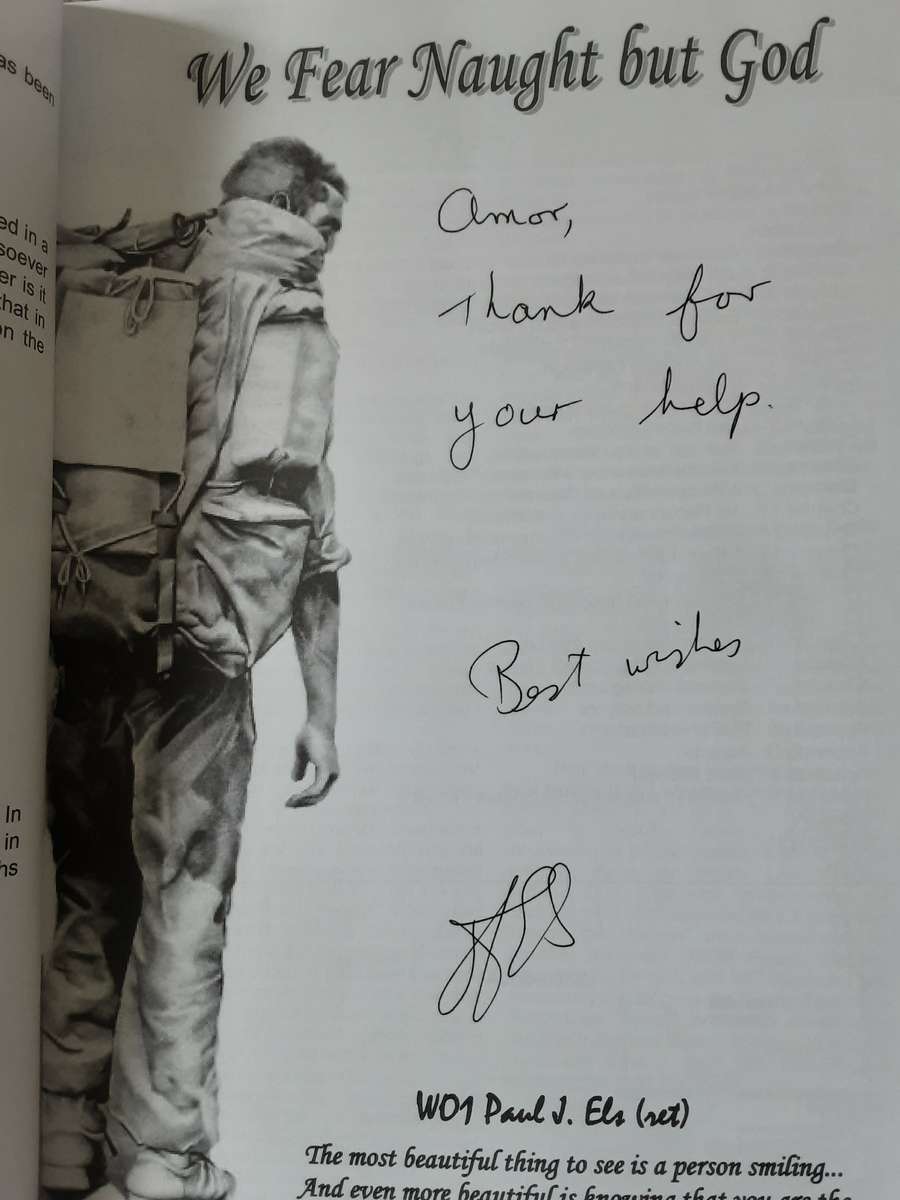 as been
ed in a
soever
er is it
that in
on the
In
in
hs
We Fear Naught but God
Amor,
Thank for
your help.
Best wishes
WO1 Paul J. Els (ret)
The most beautiful thing to see is a person smiling...
And even more beautiful is knowing that you are the